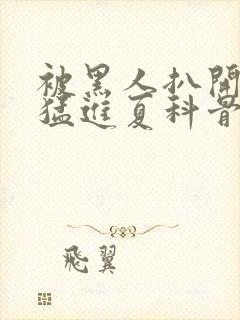 被黑人扒開
猛進夏科普
飛翼